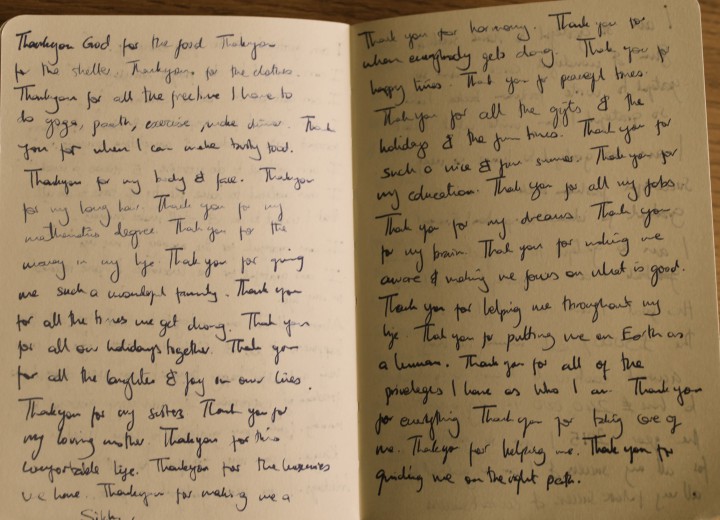 Thankyou God for the food Thankyou
for the shelter. Thankyou for the clothes.
Thankyou for all the freetime I have to
do yoga, paath, exercise, make dinner. Thank
you for when I can make tasty food.
Thankyou for my body & face. Thankyou
for my long hair. Thank you for my
mathematics degree. Thank you for the
money in my life. Thank you for giving
me such a wonderful family. Thank you
for all the times we get along. Thank you
for all our holidays together. Thank you
for all the laughter & joy in our lives.
Thankyou for my sisters Thank you for
my loving mother. Thankyou for this
comfortable life. Thankyou for the luxuries
we have. Thankyou for making me a
Sikh.
Thank you for harmony. Thank you for
when everybody gets along. Thank you for
happy times. Thank you for peaceful times.
Thank you for all the gifts & the
holidays & the fun times. Thank you for
such a nice & fun summer. Thank you for
my education. Thank you for all my jobs
Thank you for my dreams Thank you
for my brain. Thank you for making me
aware & making me focus on what is good.
Thank you for helping me throughout my
life. Thank you for putting me on Earth as
a human. Thank you for all of the
privileges I have as who I am. Thank you
for everything Thank you for taking care of
me. Thankyou for helping me. Thank you for
guiding me on the right path.